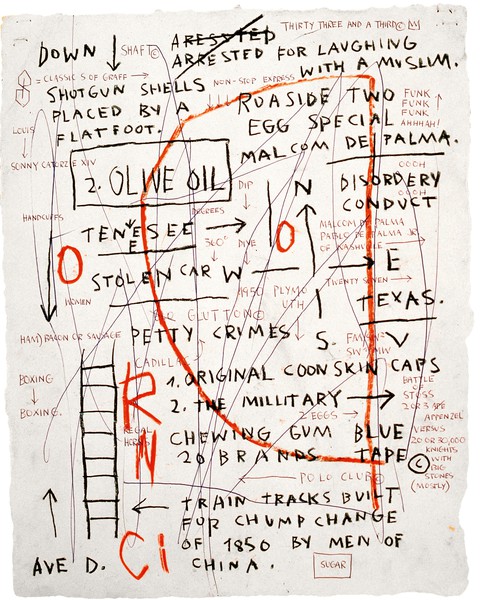 THIRTY THREE AND A THIRD ©
DOWN ↓ SHAFT ©
ARESSTED
ARRESTED FOR LAUGHING
WITH A MUSLIM.
= CLASSIC S OF GRAFF →
NON-STOP EXPRESS
SHOTGUN SHELLS
PLACED BY A
FLATFOOT.
ROASIDE TWO
EGG SPECIAL
MALCOM DE PALMA.
FUNK
FUNK
FUNK
AHHHAH!
LOUIS
SONNY CATORZE XIV
2. OLIVE OIL
OOOH
OOOH
DISORDERY
CONDUCT
DIP
DEGREES
HANDCUFFS
TENESEE →
E
360°
DIVE
N
O
MALCOM DE PALMA
PABLO DE PALMA JR
OF NASHVILLE →
O
STOLEN CAR W
E
WOMEN
1950 PLYMO
UTH
TWENTY SEVEN →
TEXAS.
GLUTTON ©
HAM) BACON OR SAUSAGE
PETTY CRIMES
S.
V
CADILLAC
BOXING
↓
BOXING.
1. ORIGINAL COONSKIN CAPS
2. THE MILLITARY →
R
N
2 EGGS →
BATTLE
OF
STOSS
2 OR 3
APPENZEL
VERSUS
20 OR 30,000
KNIGHTS
WITH
BIG
STONES
(MOSELY)
REGAL
CHEWING GUM BLUE
20 BRANDS TAPE ©
← POLO CLUB ©
← TRAIN TRACKS BUILT
FOR CHUMP CHANGE
OF 1850 BY MEN OF
CHINA.
Ci
AVE D.
SUGAR